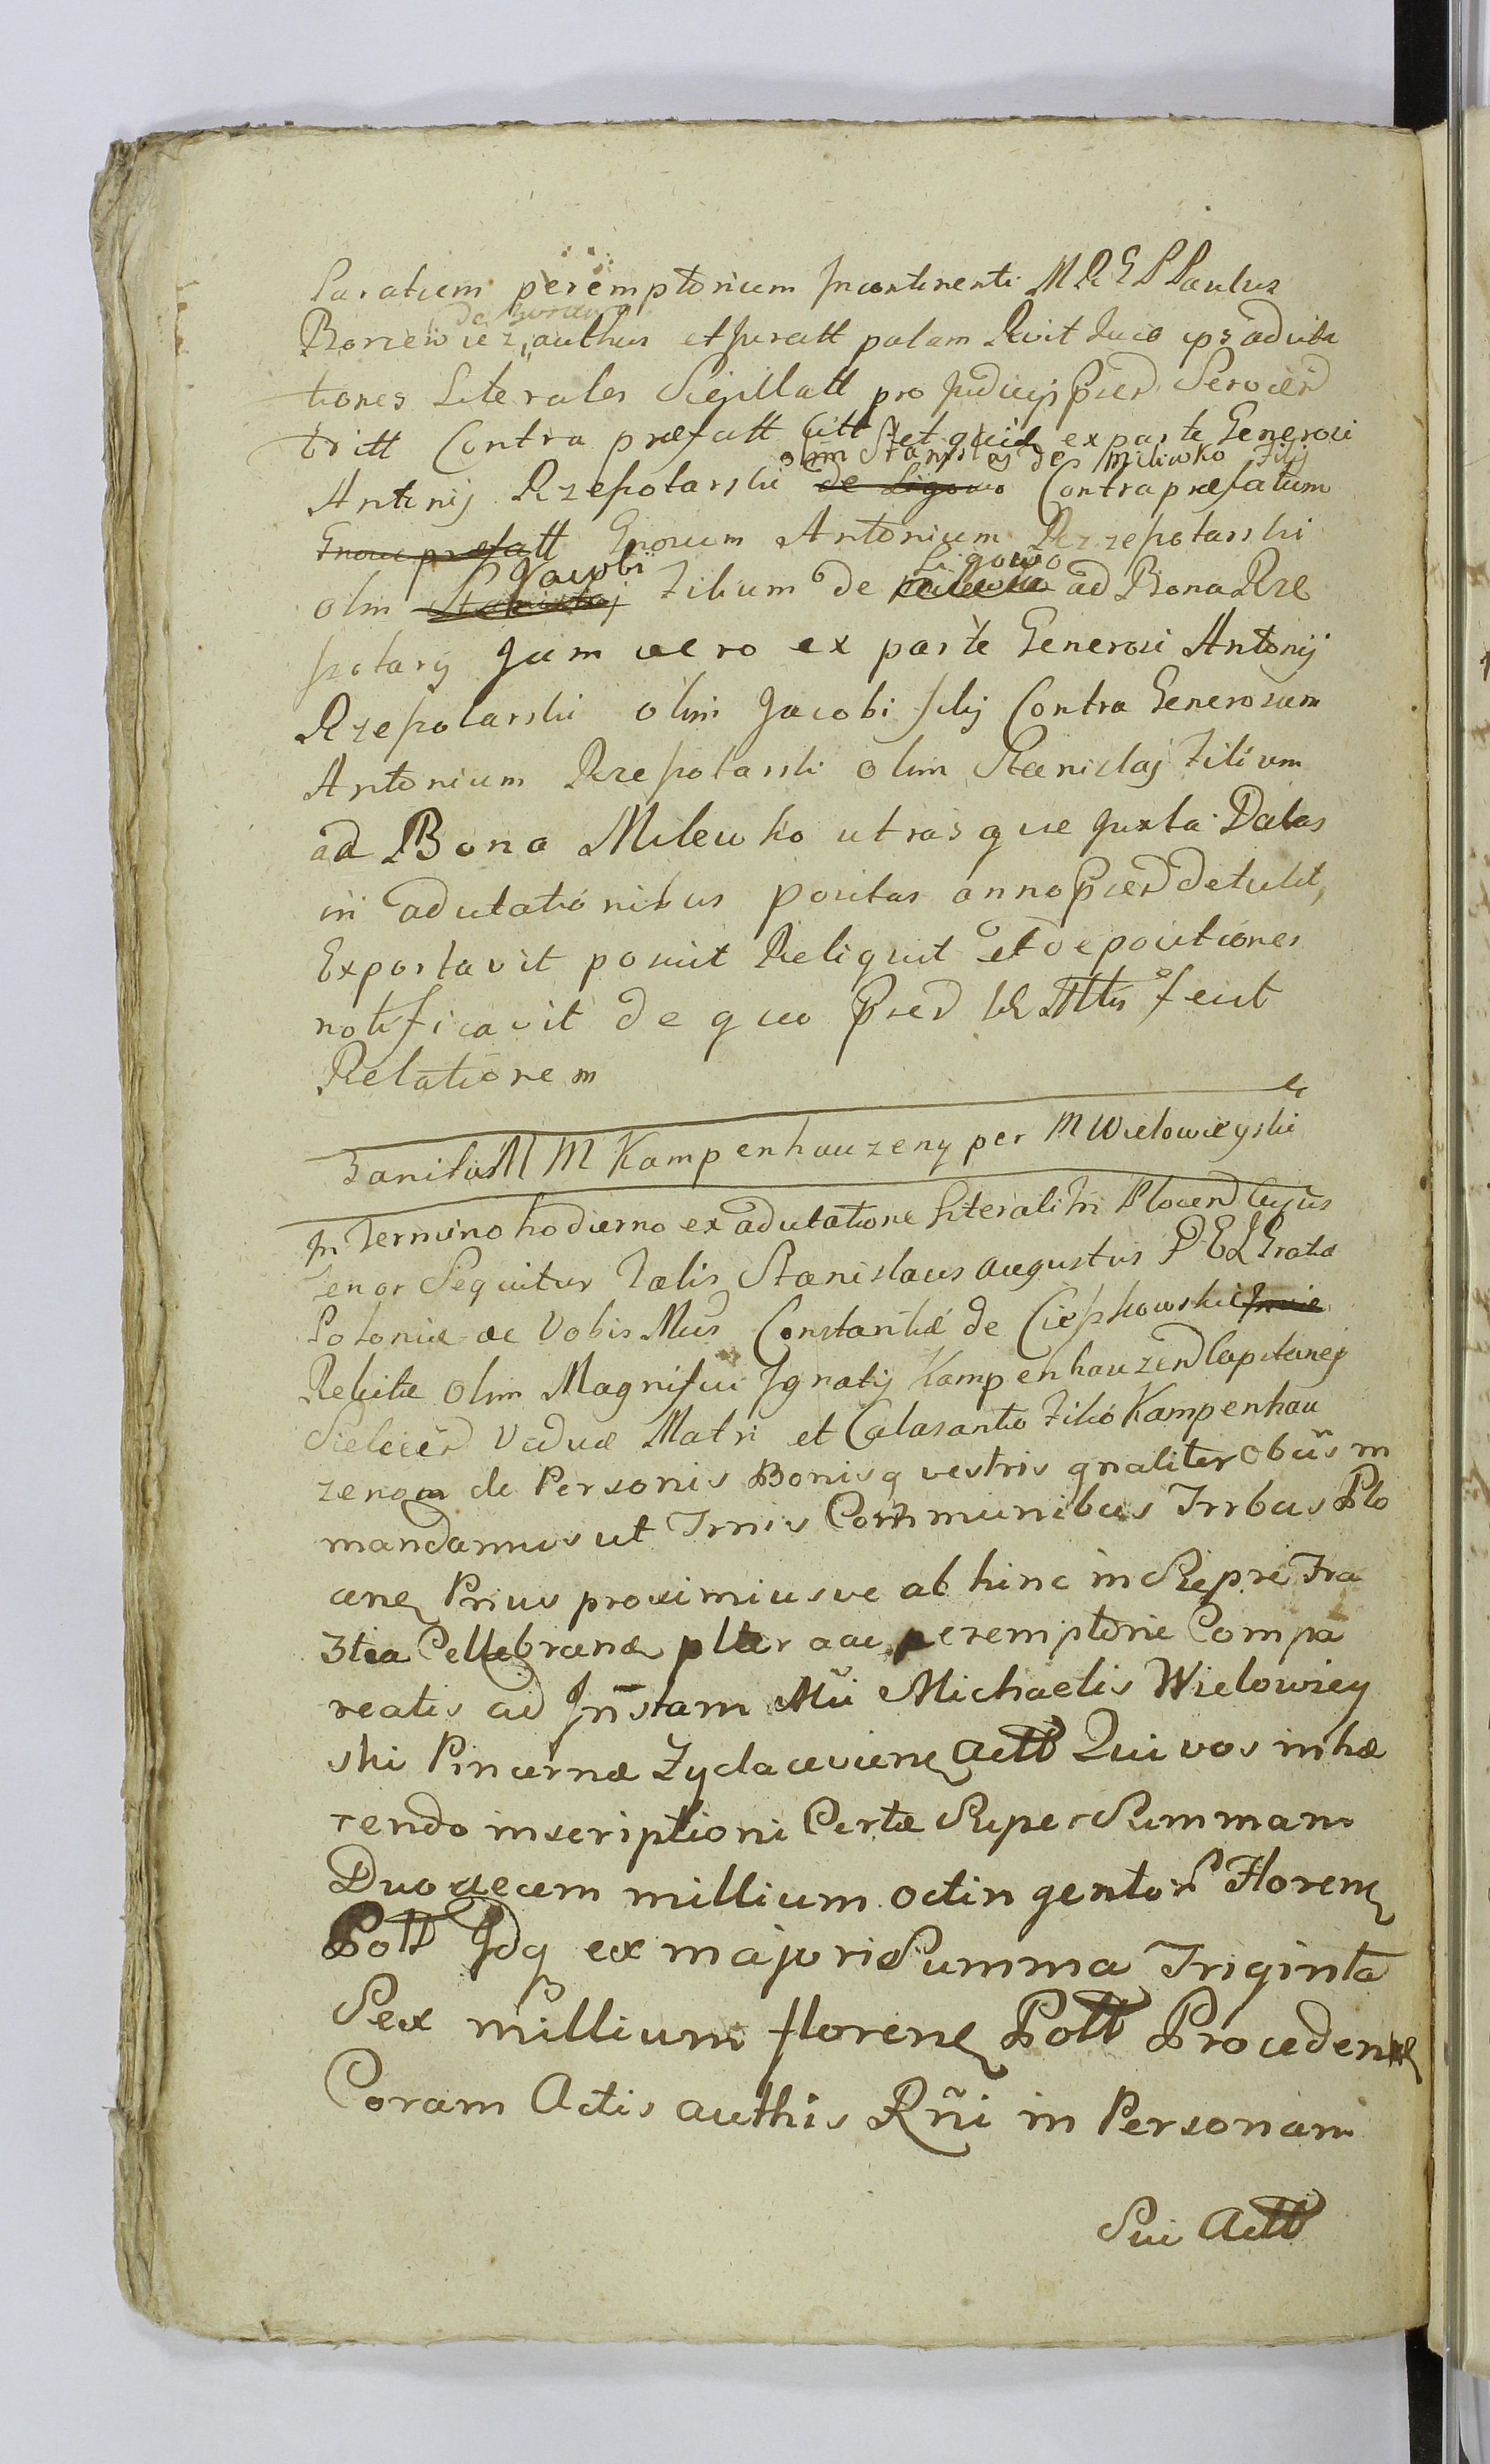 Paratum peremptorium Incontinenti M R G P Paulus
de
Borzewicz authus et Juratt palam Rcit duco ips adcita
tiones Literales Sigillatt pro Judicijs pred
tritt Contra præfatt Citt et quid ex parte Generosi
olim Stanislaj de Milewko Filij
Antonij Rzepolarski de Ligowo Contra præfatum
præfatt Gnosum Antonium Rzzepolarski
Jacobi Ligowo
olim Stanislaj Filium de ad Bona Rze
polary Jam vero ex parte Generosi Antonij
Rzepolarski olim Jacobi filij Contra Generosum
Antonium Rzepolarski olim Stanislaj Filium
ad Bona Milewko utrasque Juxta Datas
in adcitationibus positas anno pred detulit,
Exportavit posuit Reliquit et depositiones
notificavit de quo pred fecit
Relationem
Banitio M M Kampenhauzeny per M Wielowieyski
In Termino hodierno ex adcitatione Literali Tri Plocen Cujus
Tenor Sequitur Talis Stanislaus augustus D E L Gratia
Poloniæ ac Vobis Mcis Constantiæ de Ciepkowski
Relictæ olim Magnifici Ignatij Kampenhauzen Capitanej
Vaduæ Matri et Calasanto Filio Kampenhau
zenom de Personis Bonisq vestris gnaliter Obus m
mandamus ut Trnis Communibus Trrbus Plo
cen Prius proximiusve ab hinc in Sieprc Fra
3tia Cellebran plter ac peremptorie Compa
reatis ad Instam Mci Michaelis Wielowiey
ski Pincernæ Zydaceviens Actt Qui vos inhæ
rendo inscriptioni Certæ Super Summam
Duodecem millium octingentor Floren
Poll Idq ex majori Summa Triginta
Sex millium floren Poll Proceden
Coram Actis authis Rni in Personam
Sui Actt